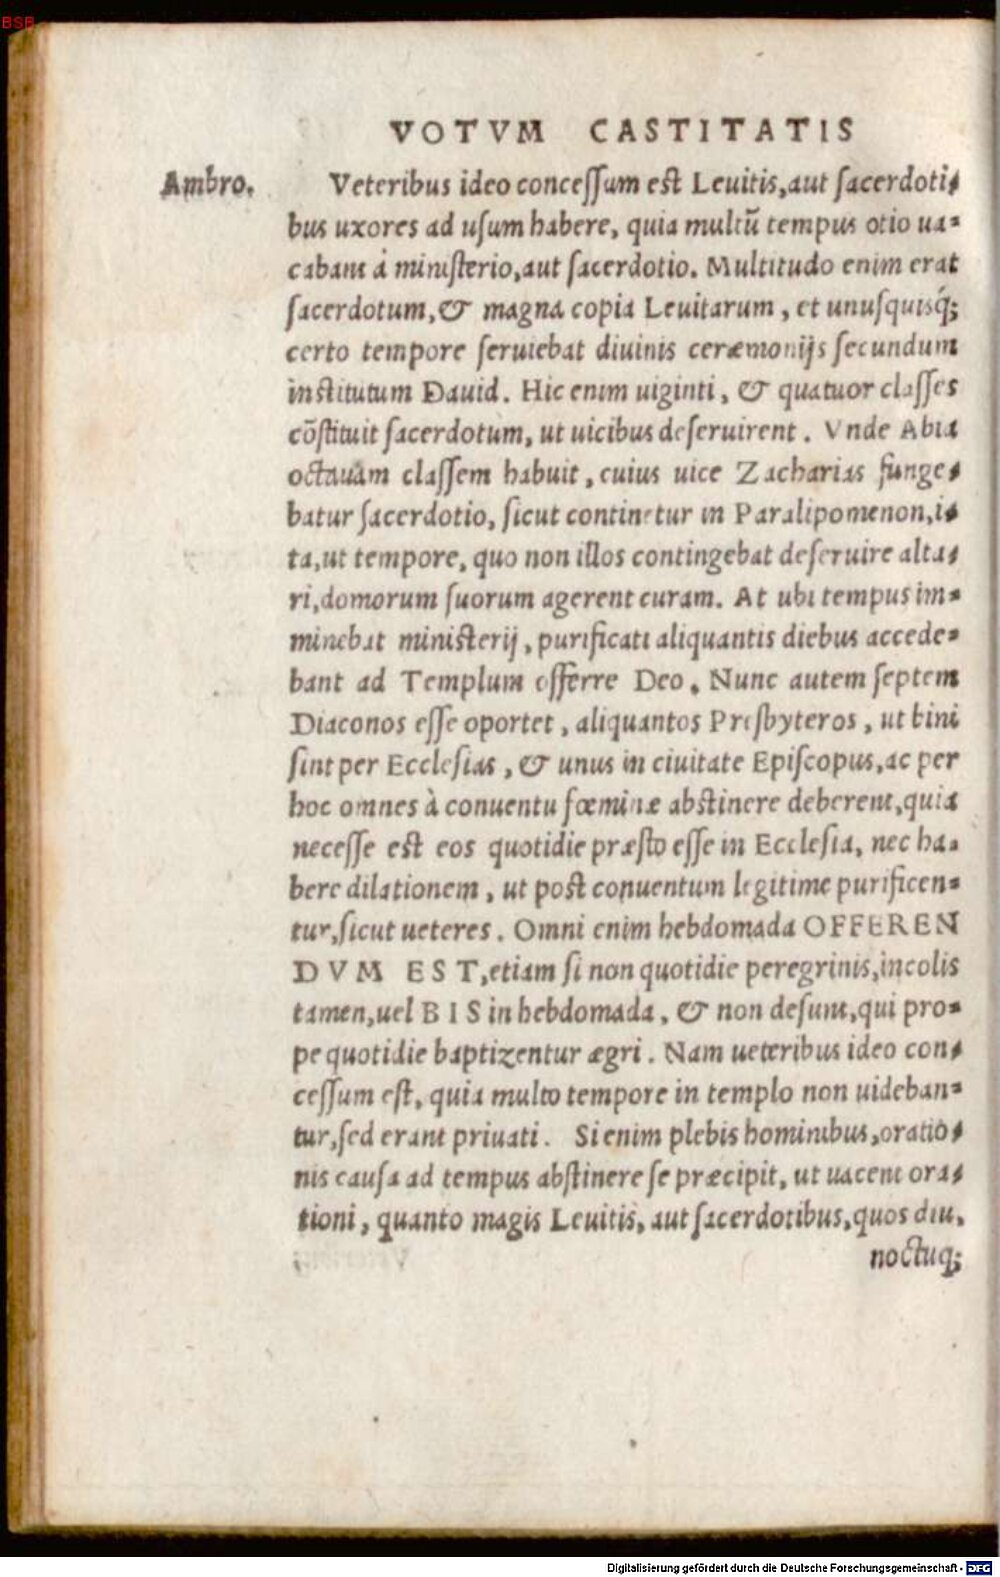 BSB
VOTVM CASTITATIS
Ambro.
Veteribus ideo concessum est Leuitis, aut sacerdoti-
bus uxores ad usum habere, quia multũ tempus otio ua-
cabant à ministerio, aut sacerdotio. Multitudo enim erat
sacerdotum, & magna copia Leuitarum, et unusquisq́;
certo tempore seruiebat diuinis ceræmonijs secundum
institutum Dauid. Hic enim uiginti, & quatuor classes
cõstituit sacerdotum, ut uicibus deseruirent. Vnde Abia
octauam classem habuit, cuius uice Zacharias funge-
batur sacerdotio, sicut continetur in Paralipomenon, i-
ta, ut tempore, quo non illos contingebat deseruire alta-
ri, domorum suorum agerent curam. At ubi tempus im-
minebat ministerij, purificati aliquantis diebus accede-
bant ad Templum offerre Deo. Nunc autem septem
Diaconos esse oportet, aliquantos Presbyteros, ut bini
sint per Ecclesias, & unus in ciuitate Episcopus, ac per
hoc omnes à conuentu fœminæ abstinere deberent, quia
necesse est eos quotidie præsto esse in Ecclesia, nec ha-
bere dilationem, ut post conuentum legitime purificen-
tur, sicut ueteres. Omni enim hebdomada OFFEREN
DVM EST, etiam si non quotidie peregrinis, incolis
tamen, uel BIS in hebdomada, & non desunt, qui pro-
pe quotidie baptizentur ægri. Nam ueteribus ideo con-
cessum est, quia multo tempore in templo non uideban-
tur, sed erant priuati. Si enim plebis hominibus, oratio-
nis causa ad tempus abstinere se præcipit, ut uacent ora-
tioni, quanto magis Leuitis, aut sacerdotibus, quos diu,
noctuq;
Digitalisierung gefördert durch die Deutsche Forschungsgemeinschaft - DFG